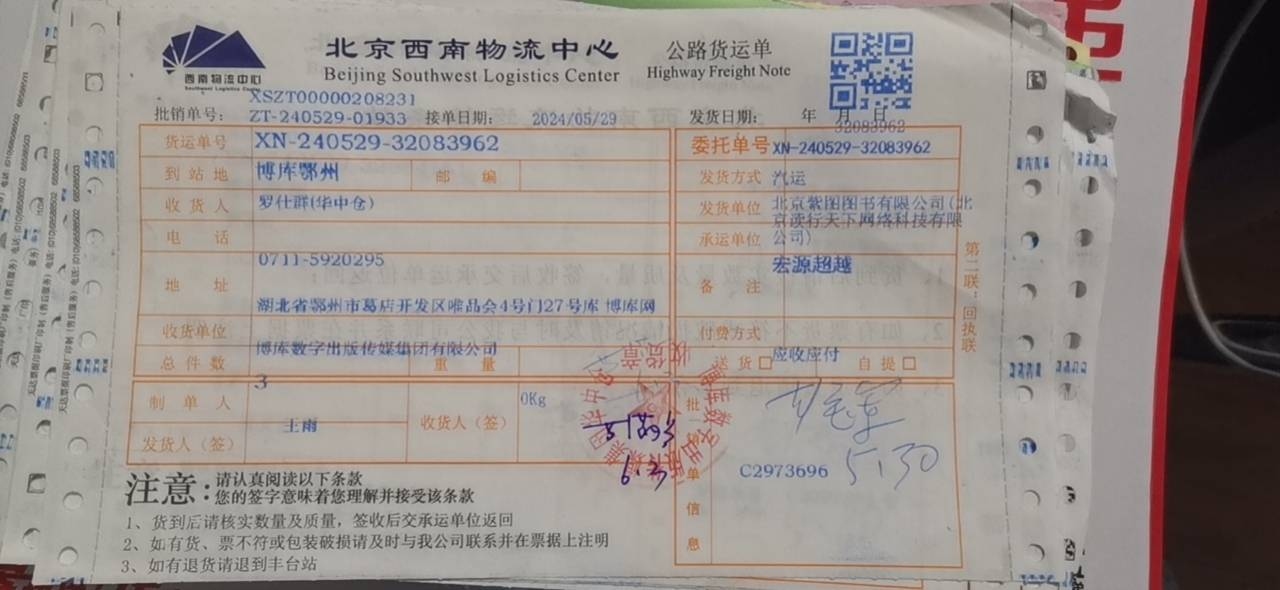 西南物流中心
Southwest Logistics Center
北京西南物流中心
Beijing Southwest Logistics Center
公路货运单
Highway Freight Note
XSZT00000208231
批销单号: ZT-240529-01933 接单日期: 2024/05/29 发货日期: 年 月 日
32083962
货运单号 XN-240529-32083962 委托单号 XN-240529-32083962
到站地 博库鄂州 邮编 发货方式 汽运
收货人 罗仕群(华中仓) 发货单位 北京紫图图书有限公司(北
京读行天下网络科技有限
电话 承运单位 公司)
0711-5920295 宏源超越
地址 备注
湖北省鄂州市葛店开发区唯品会4号门27号库 博库网
收货单位 付费方式
博库数字出版传媒集团有限公司 应收应付
总件数 重量 送货 自提
3
0Kg
制单人 收货人(签) 批销单信息
王雨
发货人(签)
C2973696 5.30
6.3
收货章
第二联:回执联
注意: 请认真阅读以下条款
您的签字意味着您理解并接受该条款
1、货到后请核实数量及质量，签收后交承运单位返回
2、如有货、票不符或包装破损请及时与我公司联系并在票据上注明
3、如有退货请退到丰台站